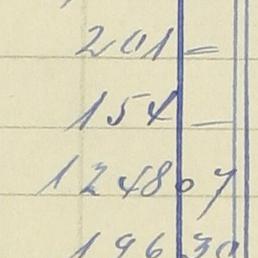 201 –
154 –
1248 07
196 30